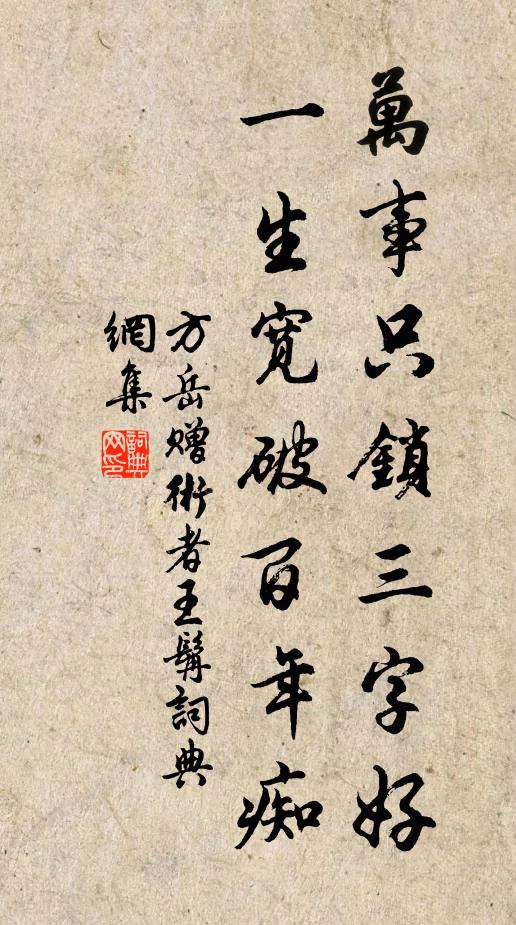 萬事只鎖三字好
一生寬破百年痴
方岳贈術者王髯詞典
網集
詞典网印